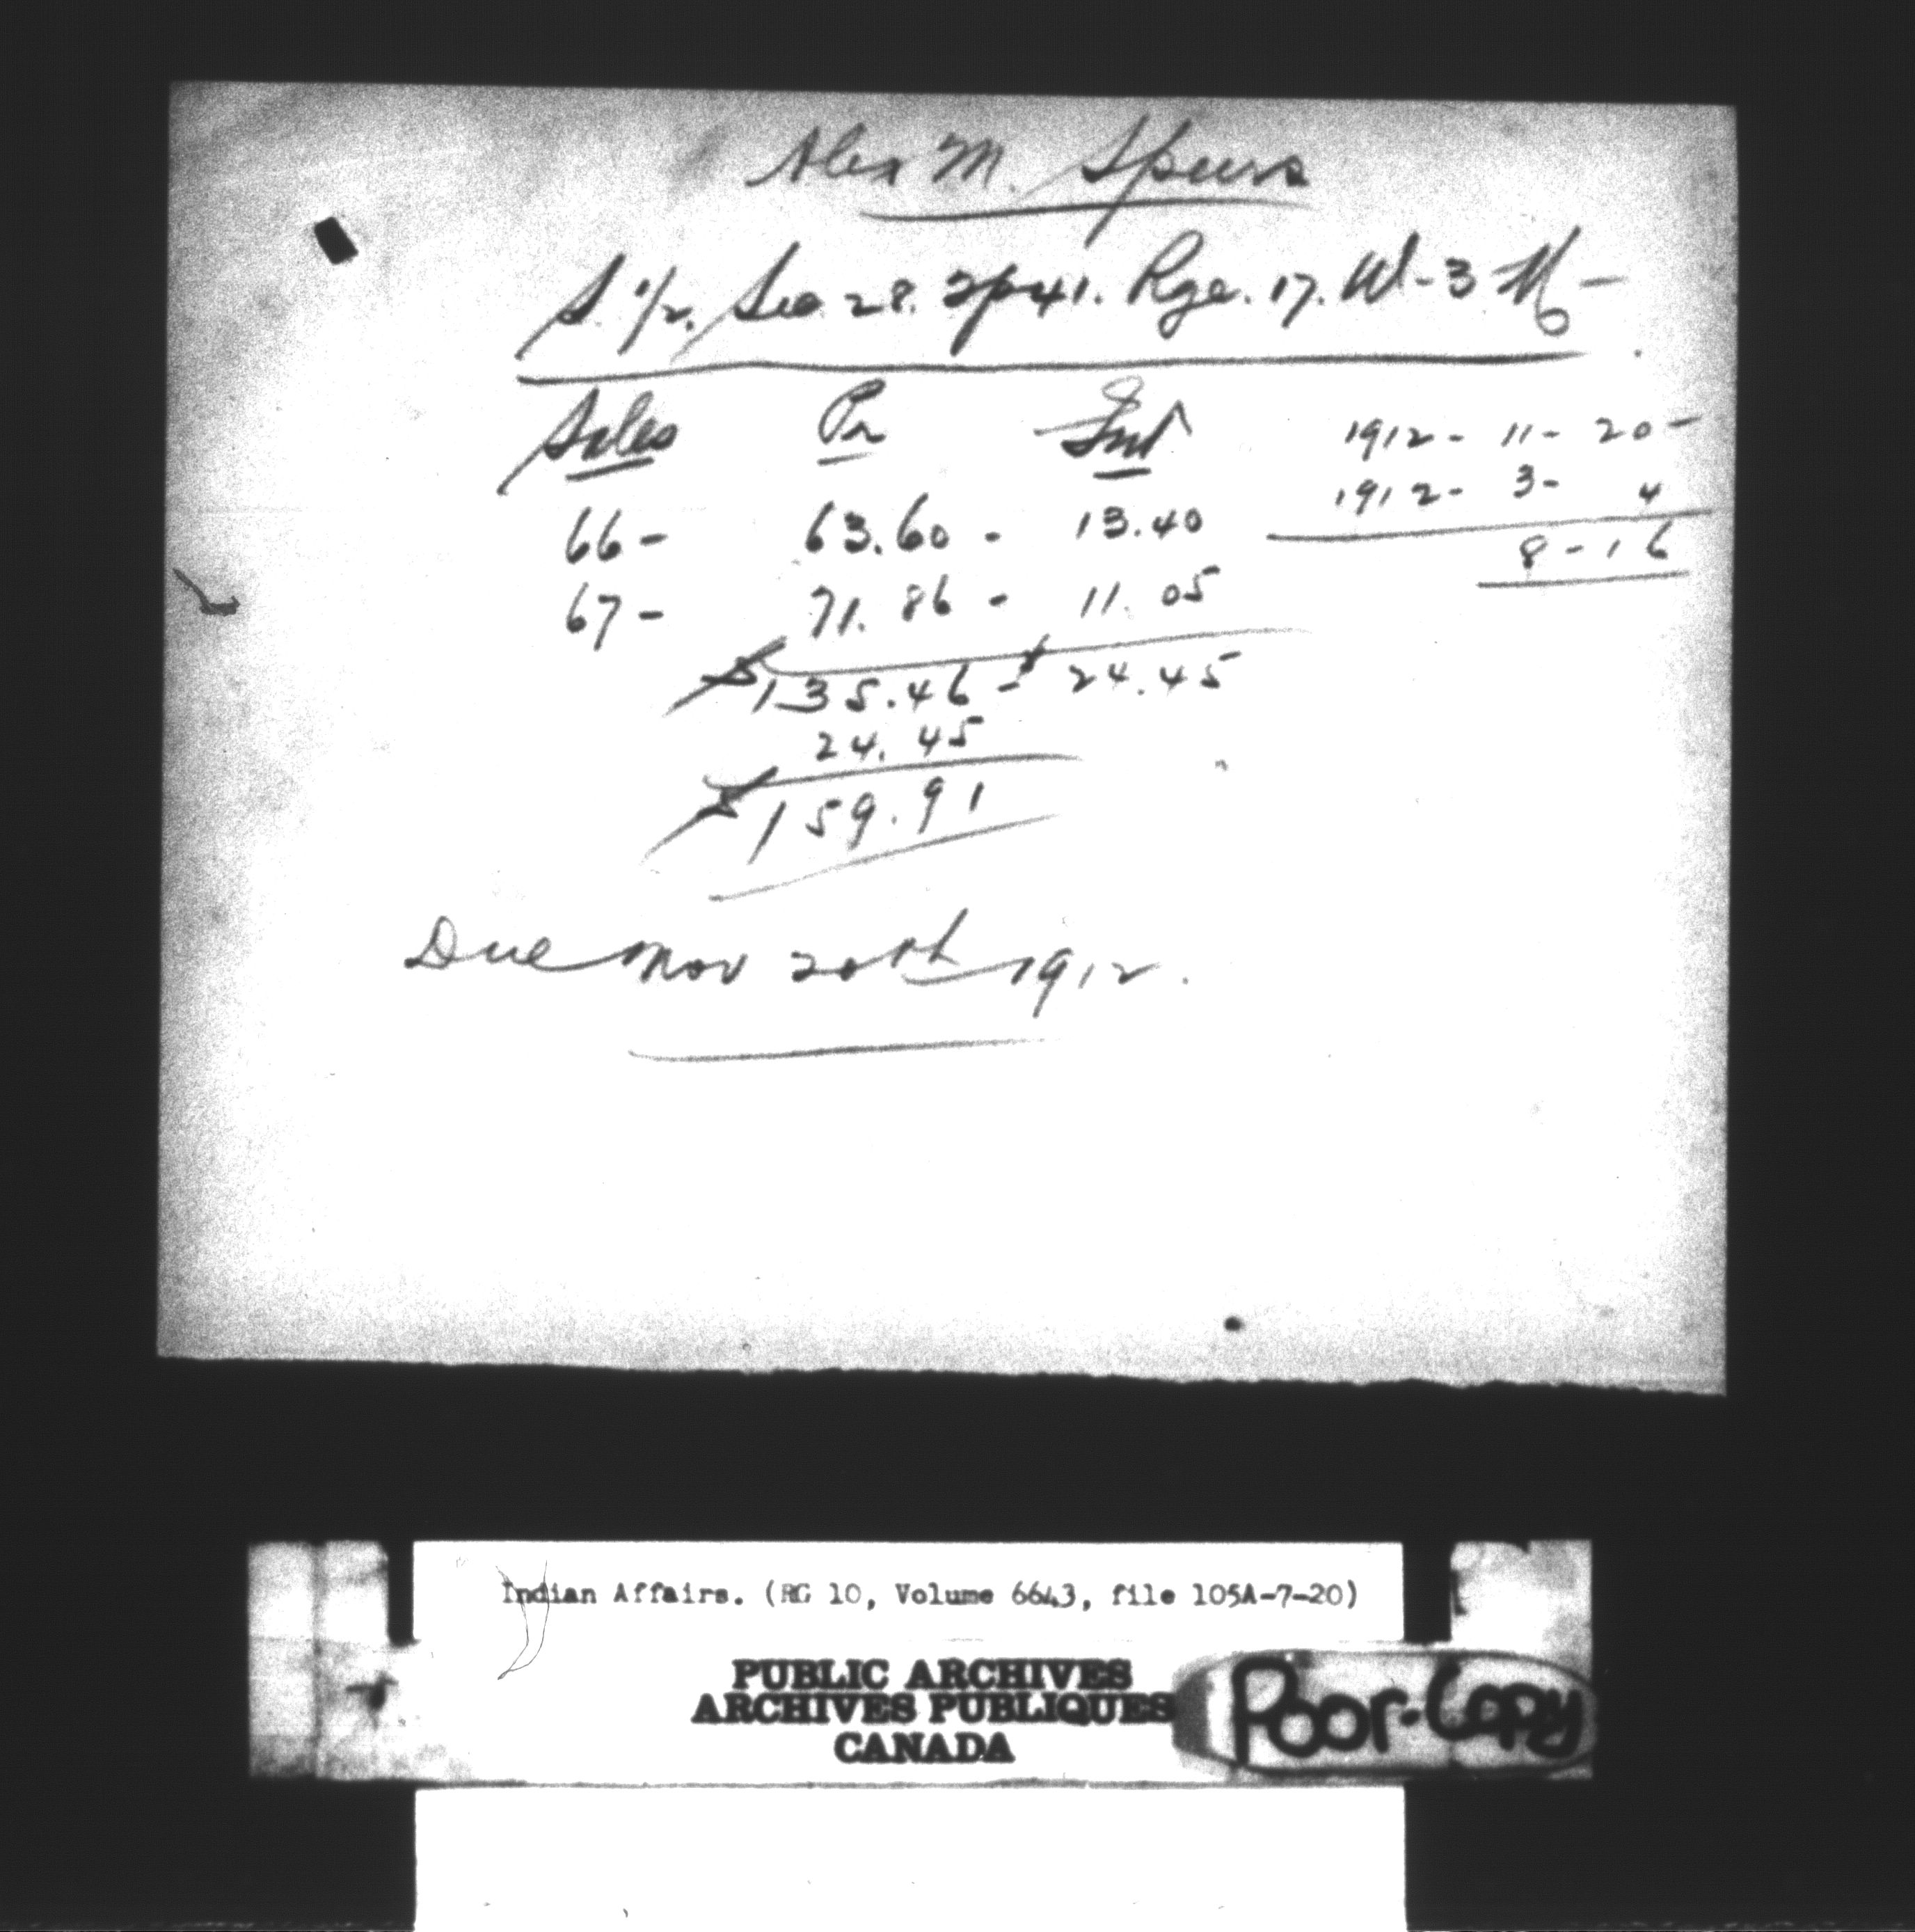 Alex M. Speers
S. 1/2. Sec 28. Tp 41. Rge. 17. W-3 M-
Sales Pr Int
66- 63.60 - 13.40
67- 71.86 - 11.05
$135.46 - $24.45
24.45
$159.91
1912- 11- 20-
1912- 3- 4
8-16
Due Nov 20th 1912.
Indian Affairs. (RG 10, Volume 6643, file 105A-7-20)
PUBLIC ARCHIVES
ARCHIVES PUBLIQUES
CANADA
Poor-Copy